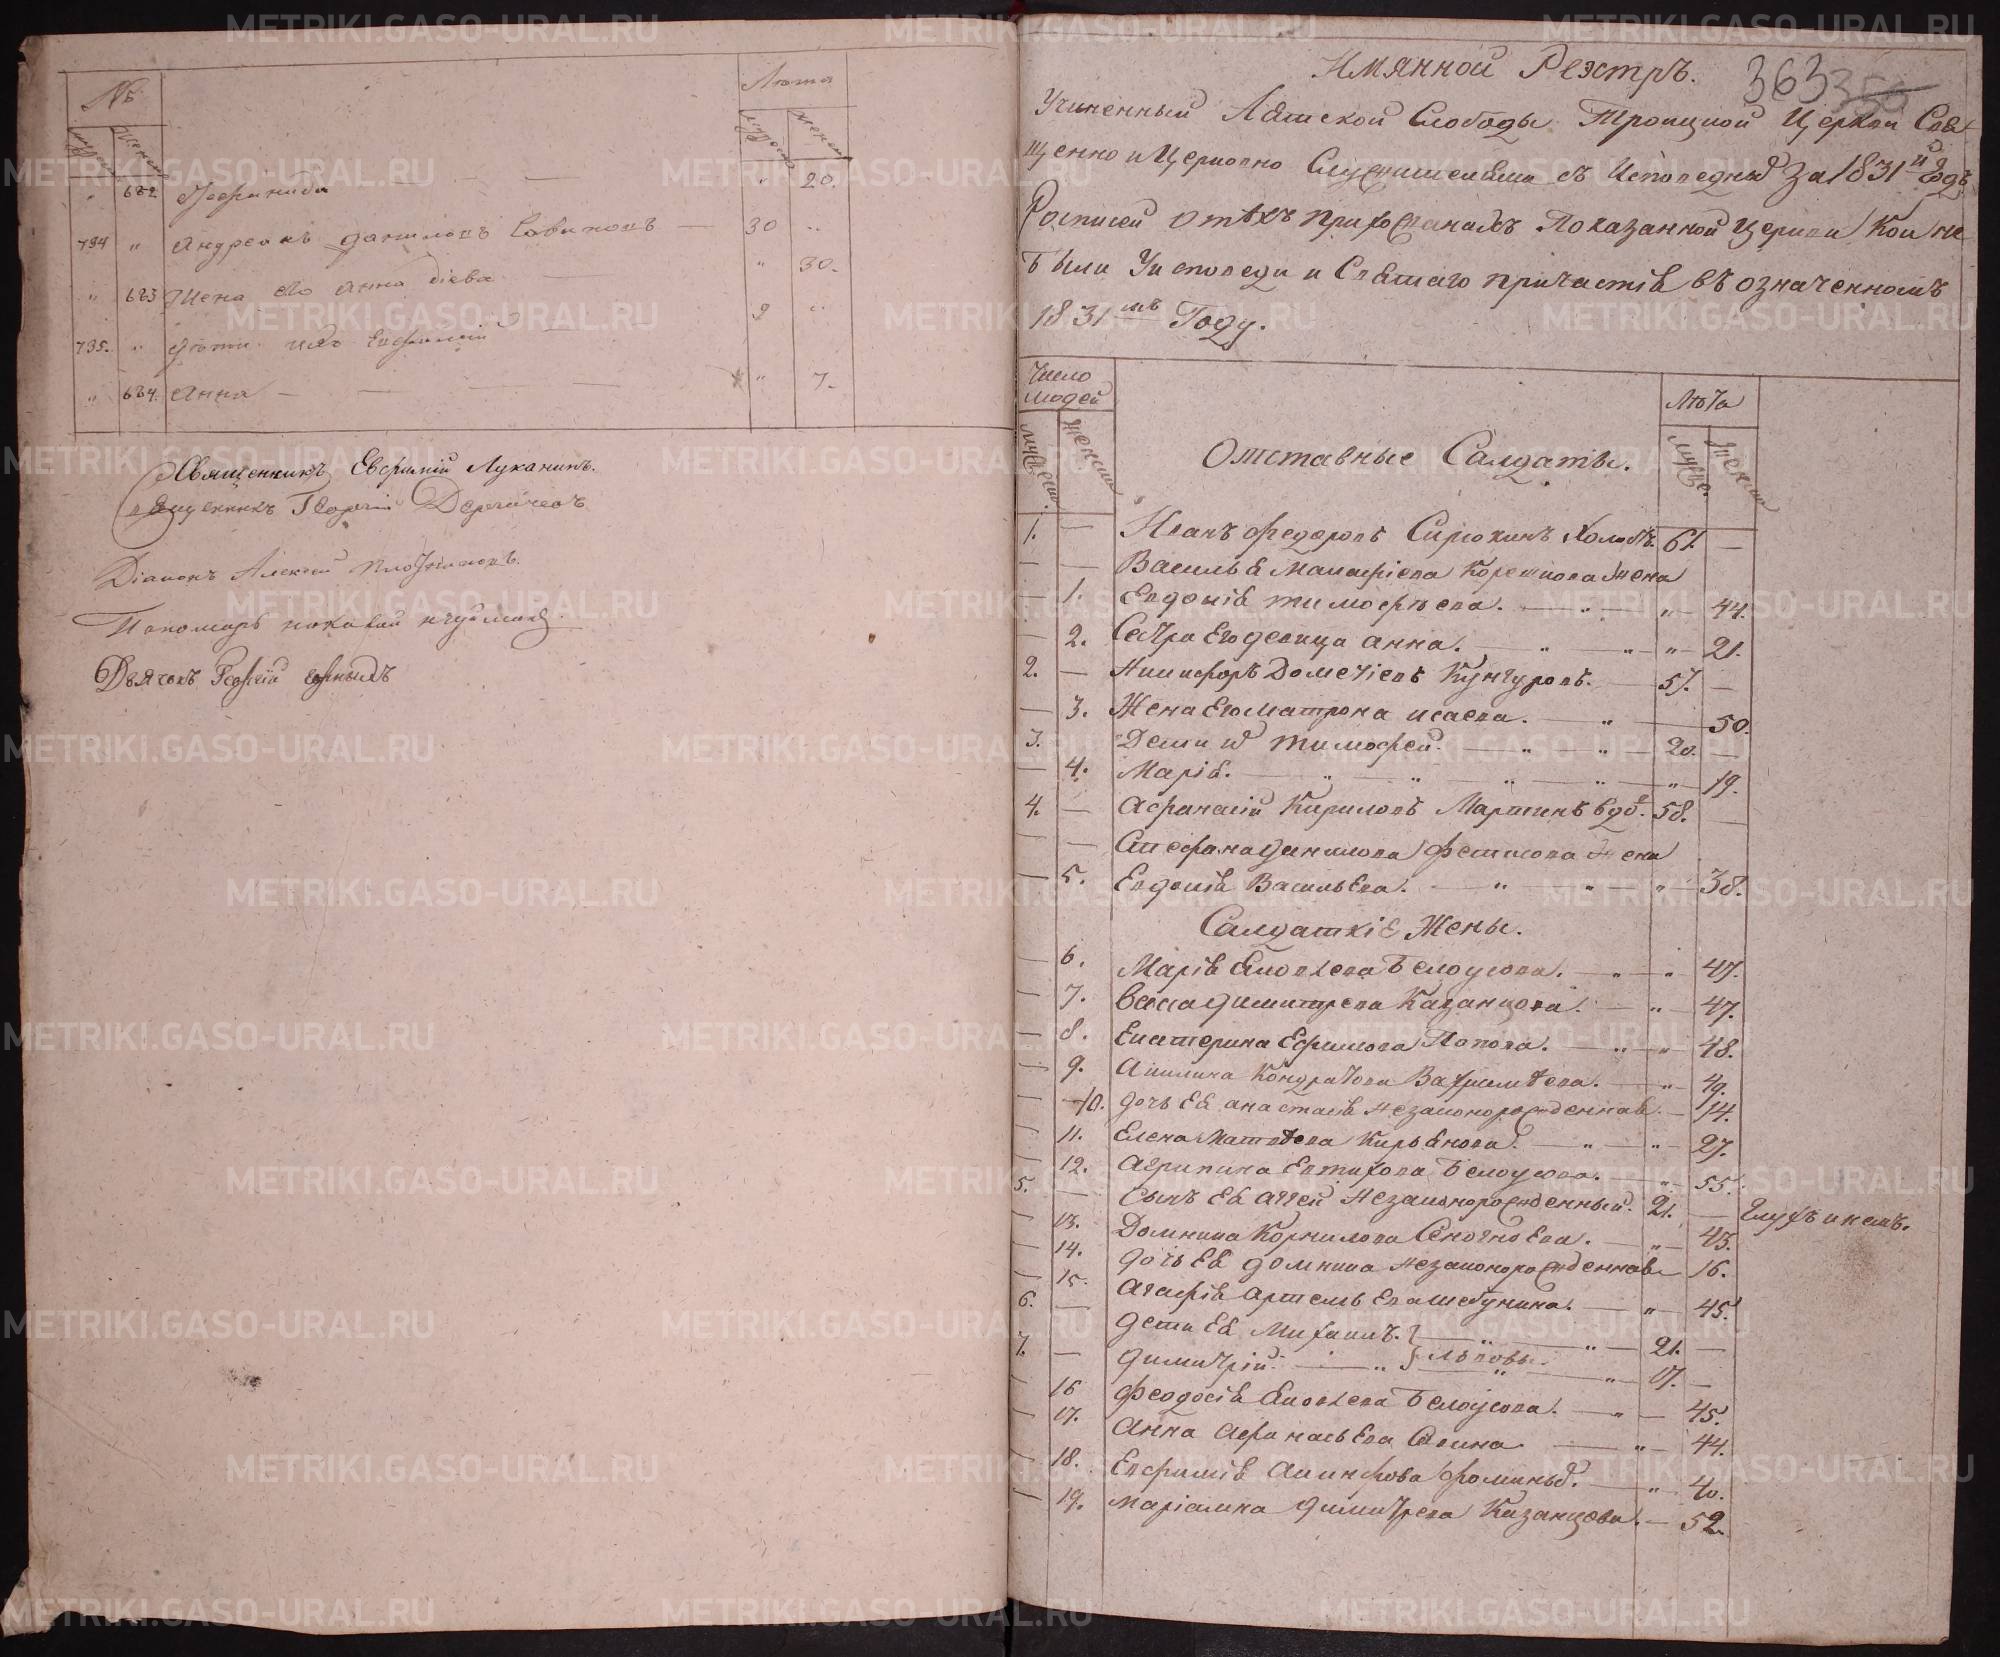 № Лѣта
мужес женск мужес женск
" 682 Ксефинида — — — " 20.
794 " Андреанъ даниловъ Савиновъ — 30 "
" 683 Жена его Анна Діева — " 30.
795. " Дѣти ихъ Евфимій — 9 "
" 684. Анна — — — " 7.
Священникъ Евфимій Луканинъ.
Священникъ Георгій
Діаконъ Алексей Плотниковъ.
Пономарь
Дьячокъ Георгій
Имянной Реэстръ. 363 350
Учиненный Аятской Слободы Троицкой Церкви Свя
щенно и Церковно Служителями съ Исповедныхъ За 1831й Годъ
Росписей о тѣхъ прихожанахъ Показанной церкви Кои не
были У исповеди и Святаго причастія въ означенномъ
1831мъ Году.
Число людей Лѣта
мужеск. женск. Отставные Салдаты. мужес. женск.
1. — Иванъ Федоровъ Сирюкинъ Холостъ. 61. —
— — Василья Малафіева Корешкова Жена
— 1. Евдокія тимофѣева. — " — " — 44.
— 2. Сестра Его девица Анна. — " — " — " — 21.
2. — Никифоръ Дометіевъ Кунгуровъ. — 57. —
— 3. Жена Его Матрона исаева. — " — 50.
3. Дети их тимофей. — " " — 20. —
— 4. Марія. — " — " — " — " — " — 19.
4. — Афанасій Кириловъ Мартинъ вдо. 58. —
— — Стефана Данилова Фетисова Жена
— 5. Евдокія Васильева. — " — " — " — 38.
Салдаткіе Жены.
— 6. Марія Яковлева Белоусова. — " — " — 47.
— 7. Васса димитрева Казанцова. — " — 47.
— 8. Екатерина Ефимова Попова. — " — " — 48.
— 9. Акилина Кондратова — " — 49.
— 10. дочь Ея анастасія незаконорожденная. — 14.
— 11. Елена Матвѣева Кирьянова. — " — " — 27.
— 12. Агрипина Евтихова Белоусова. — " — 55.
5. — Сынъ Ея Аггей Незаконорожденный. 21. — Глухъ и немъ.
— 13. Домника Корнилова — " — 43.
— 14. дочь Ея домника незаконорожденная — 16.
— 15. Агафія Артемьева Шебунина. — " — 45.
6. — дети Ея Михаилъ. — " — " — 21. —
7. — димитрій. — " } Львовы — " — " — 17. —
— 16 Феодосія Яковлева Белоусова. — " — 45.
— 17. Анна Афанасьева Савина — " — 44.
— 18. Евфимія Фоминых. — " — 40.
— 19. Маріамна димитрева Казанцова. — 52.
METRIKI.GASO-URAL.RU